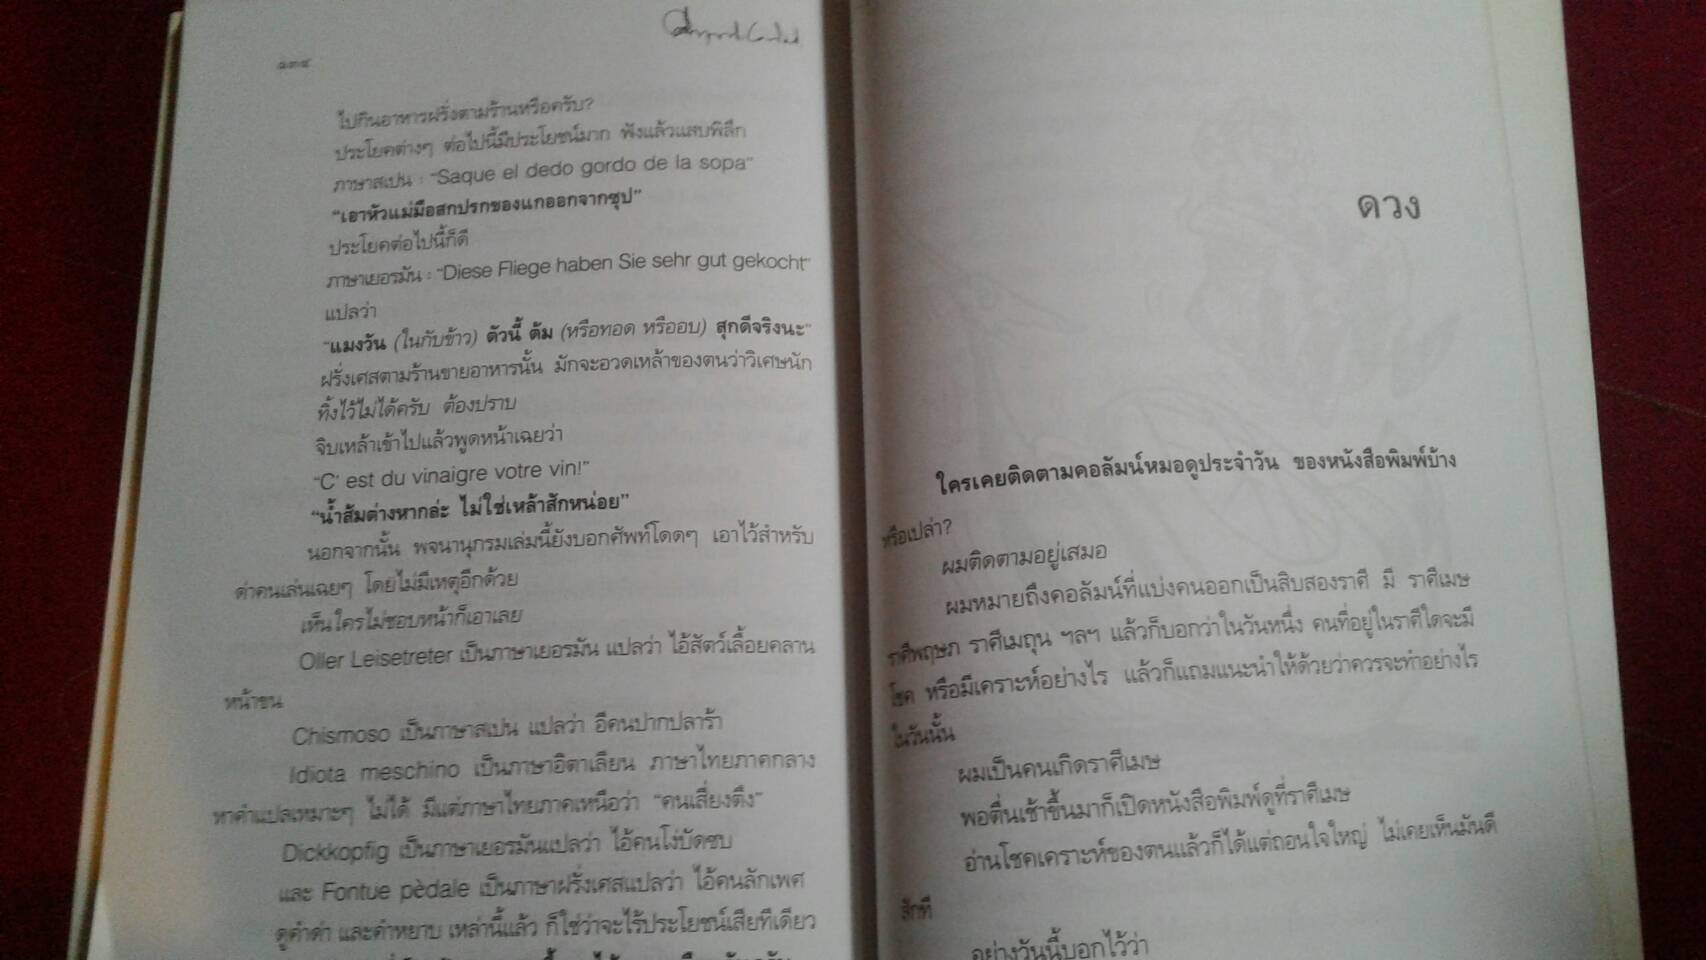 ๑๓๔
ไปกินอาหารฝรั่งตามร้านหรือครับ?
ประโยคต่างๆ ต่อไปนี้มีประโยชน์มาก ฟังแล้วแสบพิลึก
ภาษาสเปน : "Saque el dedo gordo de la sopa"
"เอาหัวแม่มือสกปรกของแกออกจากซุป"
ประโยคต่อไปนี้ก็ดี
ภาษาเยอรมัน : "Diese Fliege haben Sie sehr gut gekocht"
แปลว่า
"แมงวัน (ในกับข้าว) ตัวนี้ ต้ม (หรือทอด หรืออบ) สุกดีจริงนะ"
ฝรั่งเศสตามร้านขายอาหารนั้น มักจะอวดเหล้าของตนว่าวิเศษนัก
ทิ้งไว้ไม่ได้ครับ ต้องปราบ
จิบเหล้าเข้าไปแล้วพูดหน้าเฉยว่า
"C' est du vinaigre votre vin!"
"น้ำส้มต่างหากล่ะ ไม่ใช่เหล้าสักหน่อย"
นอกจากนั้น พจนานุกรมเล่มนี้ยังบอกศัพท์โดดๆ เอาไว้สำหรับ
ด่าคนเล่นเฉยๆ โดยไม่มีเหตุอีกด้วย
เห็นใครไม่ชอบหน้าก็เอาเลย
Oller Leisetreter เป็นภาษาเยอรมัน แปลว่า ไอ้สัตว์เลื้อยคลาน
หน้าขน
Chismoso เป็นภาษาสเปน แปลว่า อีคนปากปลาร้า
Idiota meschino เป็นภาษาอิตาเลียน ภาษาไทยภาคกลาง
หาคำแปลเหมาะๆ ไม่ได้ มีแต่ภาษาไทยภาคเหนือว่า "คนเสี่ยงตึง"
Dickkopfig เป็นภาษาเยอรมันแปลว่า ไอ้คนโง่บัดซบ
และ Fontue pèdale เป็นภาษาฝรั่งเศสแปลว่า ไอ้คนลักเพศ
ดูคำด่า และคำหยาบ เหล่านี้แล้ว ก็ใช่ว่าจะไร้ประโยชน์เสียทีเดียว
ดวง
ใครเคยติดตามคอลัมน์หมอดูประจำวัน ของหนังสือพิมพ์บ้าง
หรือเปล่า?
ผมติดตามอยู่เสมอ
ผมหมายถึงคอลัมน์ที่แบ่งคนออกเป็นสิบสองราศี มี ราศีเมษ
ราศีพฤษภ ราศีเมถุน ฯลฯ แล้วก็บอกว่าในวันหนึ่ง คนที่อยู่ในราศีใดจะมี
โชค หรือมีเคราะห์อย่างไร แล้วก็แถมแนะนำให้ด้วยว่าควรจะทำอย่างไร
ในวันนั้น
ผมเป็นคนเกิดราศีเมษ
พอตื่นเช้าขึ้นมาก็เปิดหนังสือพิมพ์ดูที่ราศีเมษ
อ่านโชคเคราะห์ของตนแล้วก็ได้แต่ถอนใจใหญ่ ไม่เคยเห็นมันดี
สักที
อย่างวันนี้บอกไว้ว่า